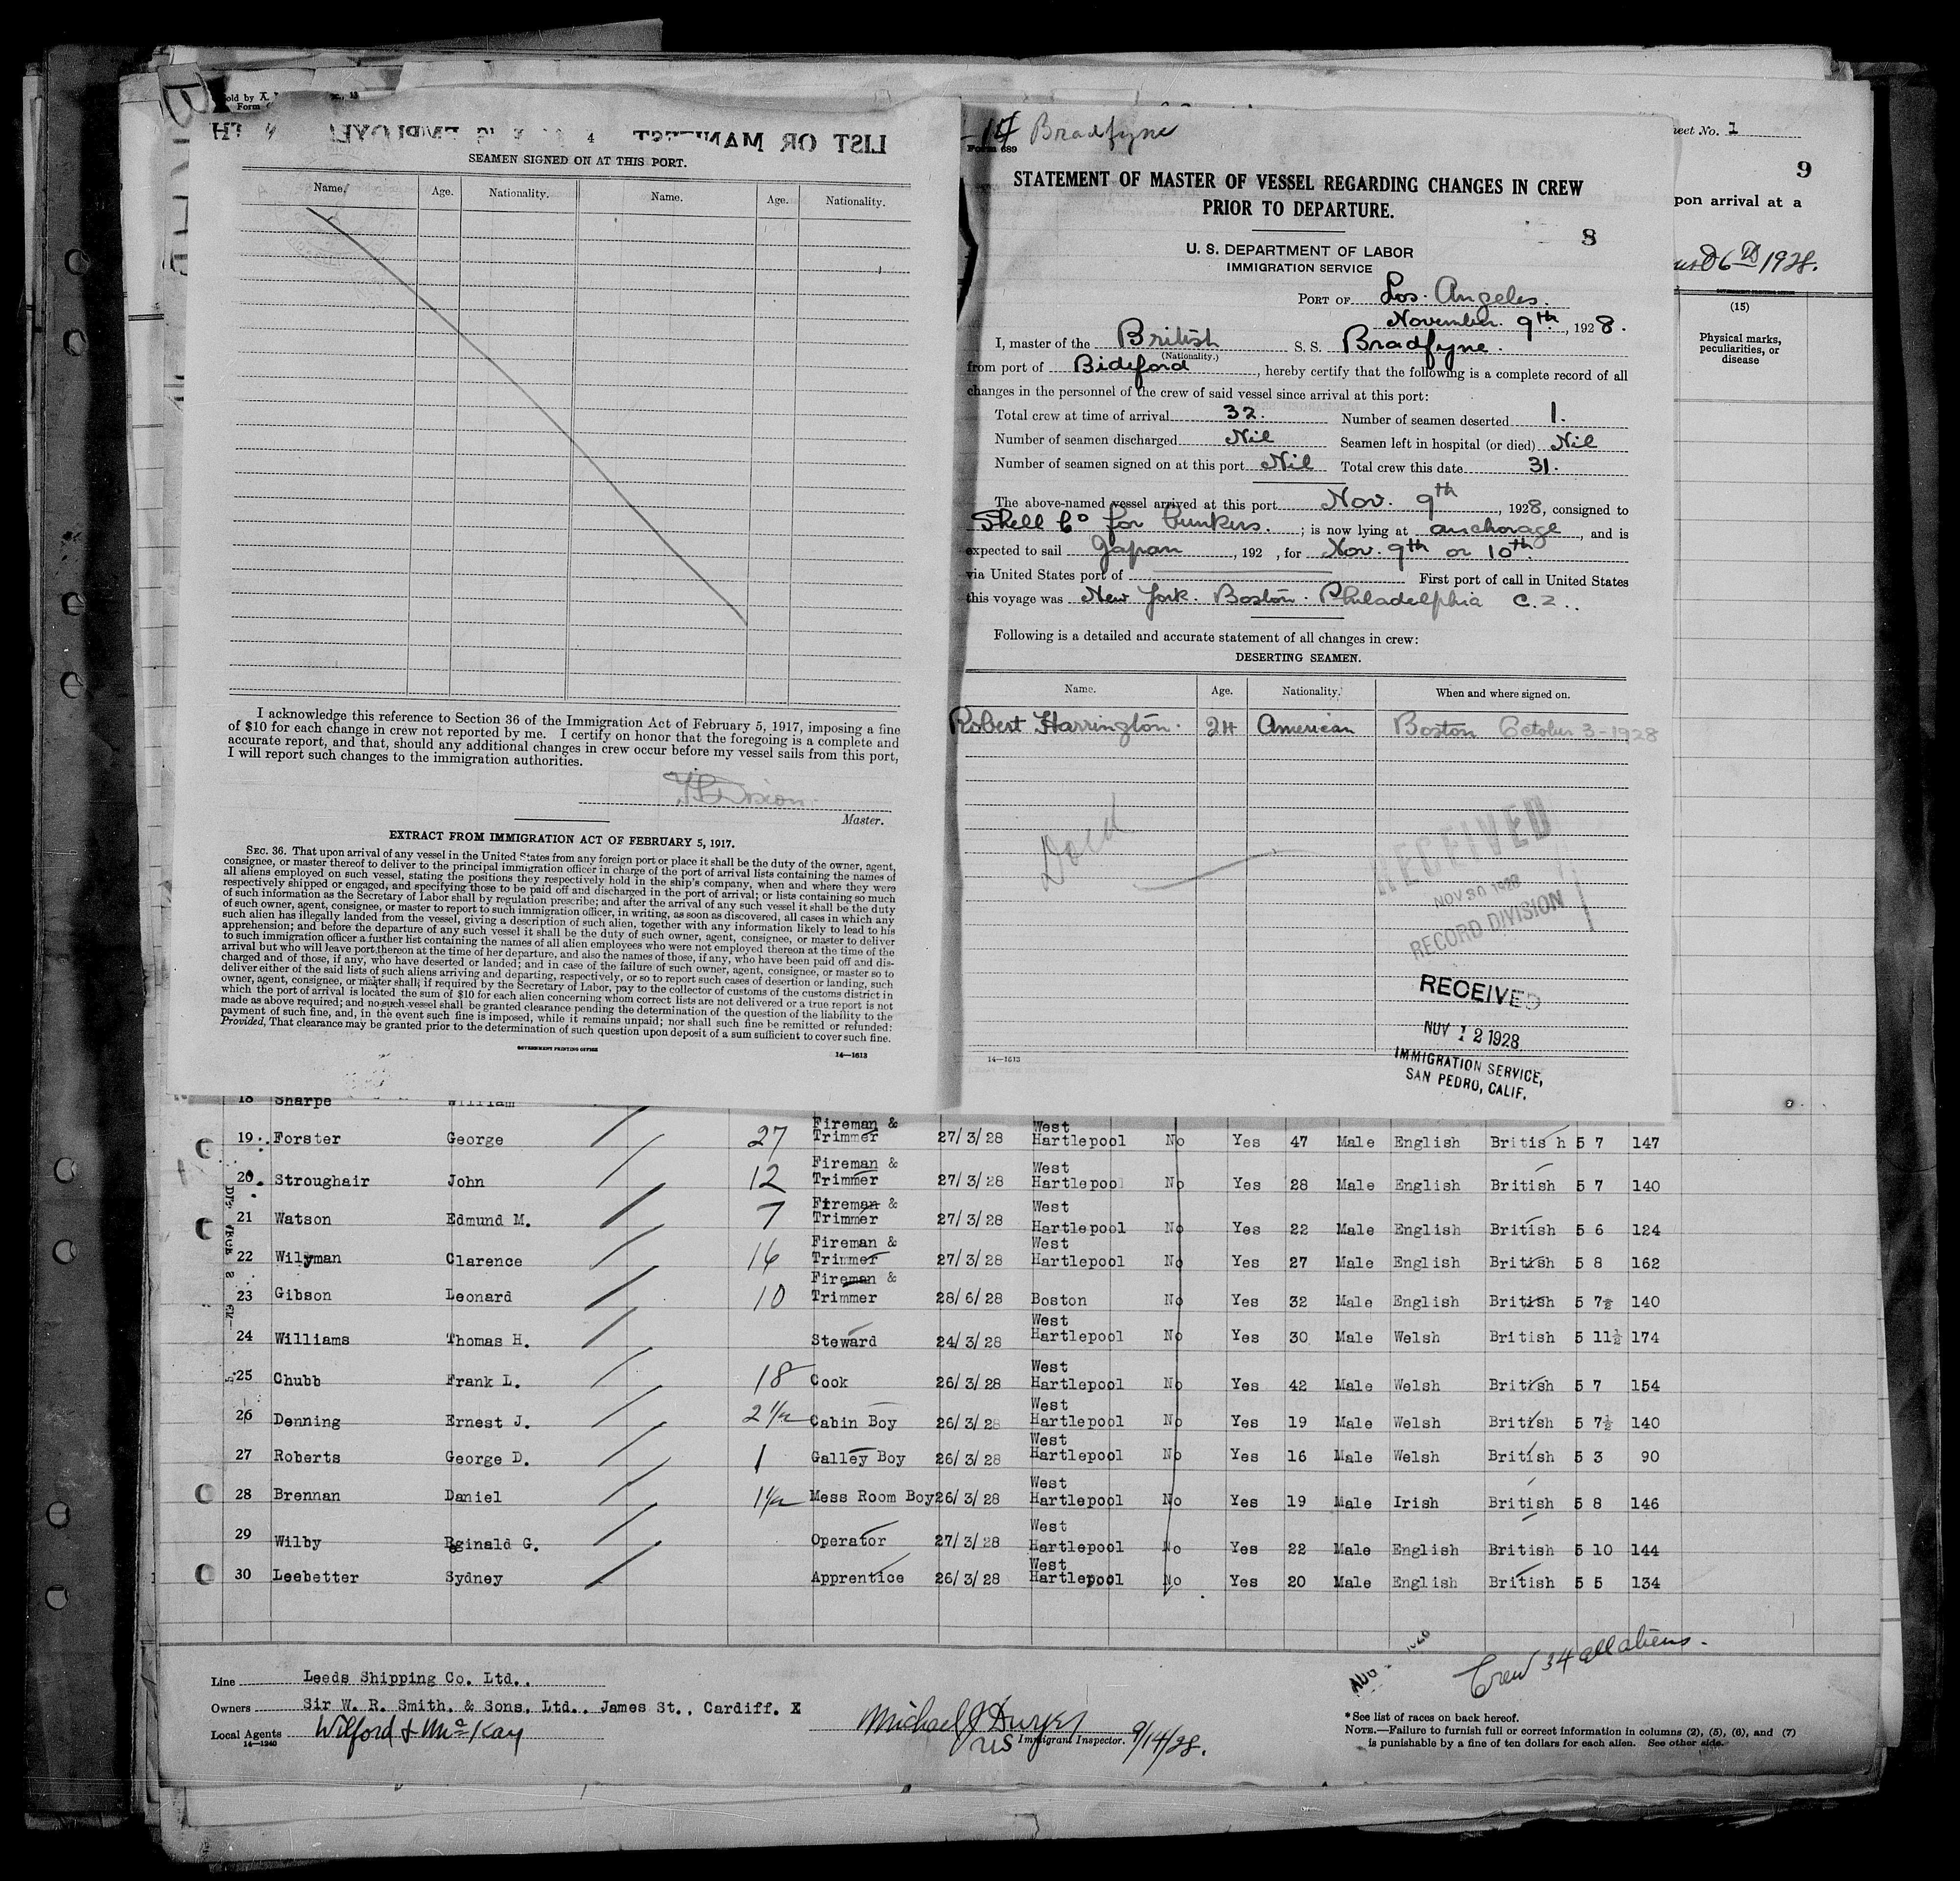 Sold by
Form
LIST OR MANIFEST
SEAMEN SIGNED ON AT THIS PORT.
Name. Age. Nationality. Name. Age. Nationality.
I acknowledge this reference to Section 36 of the Immigration Act of February 5, 1917, imposing a fine
of $10 for each change in crew not reported by me. I certify on honor that the foregoing is a complete and
accurate report, and that, should any additional changes in crew occur before my vessel sails from this port,
I will report such changes to the immigration authorities.
Master.
EXTRACT FROM IMMIGRATION ACT OF FEBRUARY 5, 1917.
SEC. 36. That upon arrival of any vessel in the United States from any foreign port or place it shall be the duty of the owner, agent,
consignee, or master thereof to deliver to the principal immigration officer in charge of the port of arrival lists containing the names of
all aliens employed on such vessel, stating the positions they respectively hold in the ship's company, when and where they were
respectively shipped or engaged, and specifying those to be paid off and discharged in the port of arrival; or lists containing so much
of such information as the Secretary of Labor shall by regulation prescribe; and after the arrival of any such vessel it shall be the duty
of such owner, agent, consignee, or master to report to such immigration officer, in writing, as soon as discovered, all cases in which any
such alien has illegally landed from the vessel, giving a description of such alien, together with any information likely to lead to his
apprehension; and before the departure of any such vessel it shall be the duty of such owner, agent, consignee, or master to deliver
to such immigration officer a further list containing the names of all alien employees who were not employed thereon at the time of the
arrival but who will leave port thereon at the time of her departure, and also the names of those, if any, who have been paid off and dis-
charged and of those, if any, who have deserted or landed; and in case of the failure of such owner, agent, consignee, or master so to
deliver either of the said lists of such aliens arriving and departing, respectively, or so to report such cases of desertion or landing, such
owner, agent, consignee, or master shall, if required by the Secretary of Labor, pay to the collector of customs of the customs district in
which the port of arrival is located the sum of $10 for each alien concerning whom correct lists are not delivered or a true report is not
made as above required; and no such vessel shall be granted clearance pending the determination of the question of the liability to the
payment of such fine, and, in the event such fine is imposed, while it remains unpaid; nor shall such fine be remitted or refunded:
Provided, That clearance may be granted prior to the determination of such question upon deposit of a sum sufficient to cover such fine.
GOVERNMENT PRINTING OFFICE
14—1613
Bradfyne
Form 689
STATEMENT OF MASTER OF VESSEL REGARDING CHANGES IN CREW
PRIOR TO DEPARTURE.
8
U. S. DEPARTMENT OF LABOR
IMMIGRATION SERVICE
PORT OF Los Angeles.
November 9th, 1928.
I, master of the British S. S. Bradfyne.
(Nationality.)
from port of Bideford, hereby certify that the following is a complete record of all
changes in the personnel of the crew of said vessel since arrival at this port:
Total crew at time of arrival 32. Number of seamen deserted 1.
Number of seamen discharged Nil Seamen left in hospital (or died) Nil
Number of seamen signed on at this port Nil Total crew this date 31.
The above-named vessel arrived at this port Nov. 9th, 1928, consigned to
Shell Co for bunkers.; is now lying at anchorage, and is
expected to sail Japan, 192 , for Nov. 9th or 10th
via United States port of First port of call in United States
this voyage was New York. Boston. Philadelphia C.Z..
Following is a detailed and accurate statement of all changes in crew:
DESERTING SEAMEN.
Name. Age. Nationality. When and where signed on.
Robert Harrington. 24 American Boston October 3-1928
RECEIVED
NOV 30 1928
RECORD DIVISION
RECEIVED
NOV 12 1928
IMMIGRATION SERVICE,
SAN PEDRO, CALIF.
14—1613
eet No. 1
9
pon arrival at a
6th 1928.
GOVERNMENT PRINTING OFFICE
(15)
Physical marks,
peculiarities, or
disease
18 Sharpe William
19 Forster George 27 Fireman & Trimmer 27/3/28 West Hartlepool No Yes 47 Male English British 5 7 147
20 Stroughair John 12 Fireman & Trimmer 27/3/28 West Hartlepool No Yes 28 Male English British 5 7 140
21 Watson Edmund M. 7 Fireman & Trimmer 27/3/28 West Hartlepool No Yes 22 Male English British 5 6 124
22 Wilyman Clarence 16 Fireman & Trimmer 27/3/28 West Hartlepool No Yes 27 Male English British 5 8 162
23 Gibson Leonard 10 Fireman & Trimmer 28/6/28 Boston No Yes 32 Male English British 5 7½ 140
24 Williams Thomas H. Steward 24/3/28 West Hartlepool No Yes 30 Male Welsh British 5 11½ 174
25 Chubb Frank L. 18 Cook 26/3/28 West Hartlepool No Yes 42 Male Welsh British 5 7 154
26 Denning Ernest J. 2½ Cabin Boy 26/3/28 West Hartlepool No Yes 19 Male Welsh British 5 7½ 140
27 Roberts George D. 1 Galley Boy 26/3/28 West Hartlepool No Yes 16 Male Welsh British 5 3 90
28 Brennan Daniel 1½ Mess Room Boy 26/3/28 West Hartlepool No Yes 19 Male Irish British 5 8 146
29 Wilby Reginald G. Operator 27/3/28 West Hartlepool No Yes 22 Male English British 5 10 144
30 Leebetter Sydney Apprentice 26/3/28 West Hartlepool No Yes 20 Male English British 5 5 134
Crew 34 all aliens.
Line Leeds Shipping Co. Ltd..
Owners Sir W. R. Smith. & Sons. Ltd.. James St.. Cardiff. X
Local Agents Wilford & McKay
14—1240
Michael J Dwyer
US Immigrant Inspector. 9/14/28.
* See list of races on back hereof.
NOTE.—Failure to furnish full or correct information in columns (2), (5), (6), and (7)
is punishable by a fine of ten dollars for each alien. See other side.